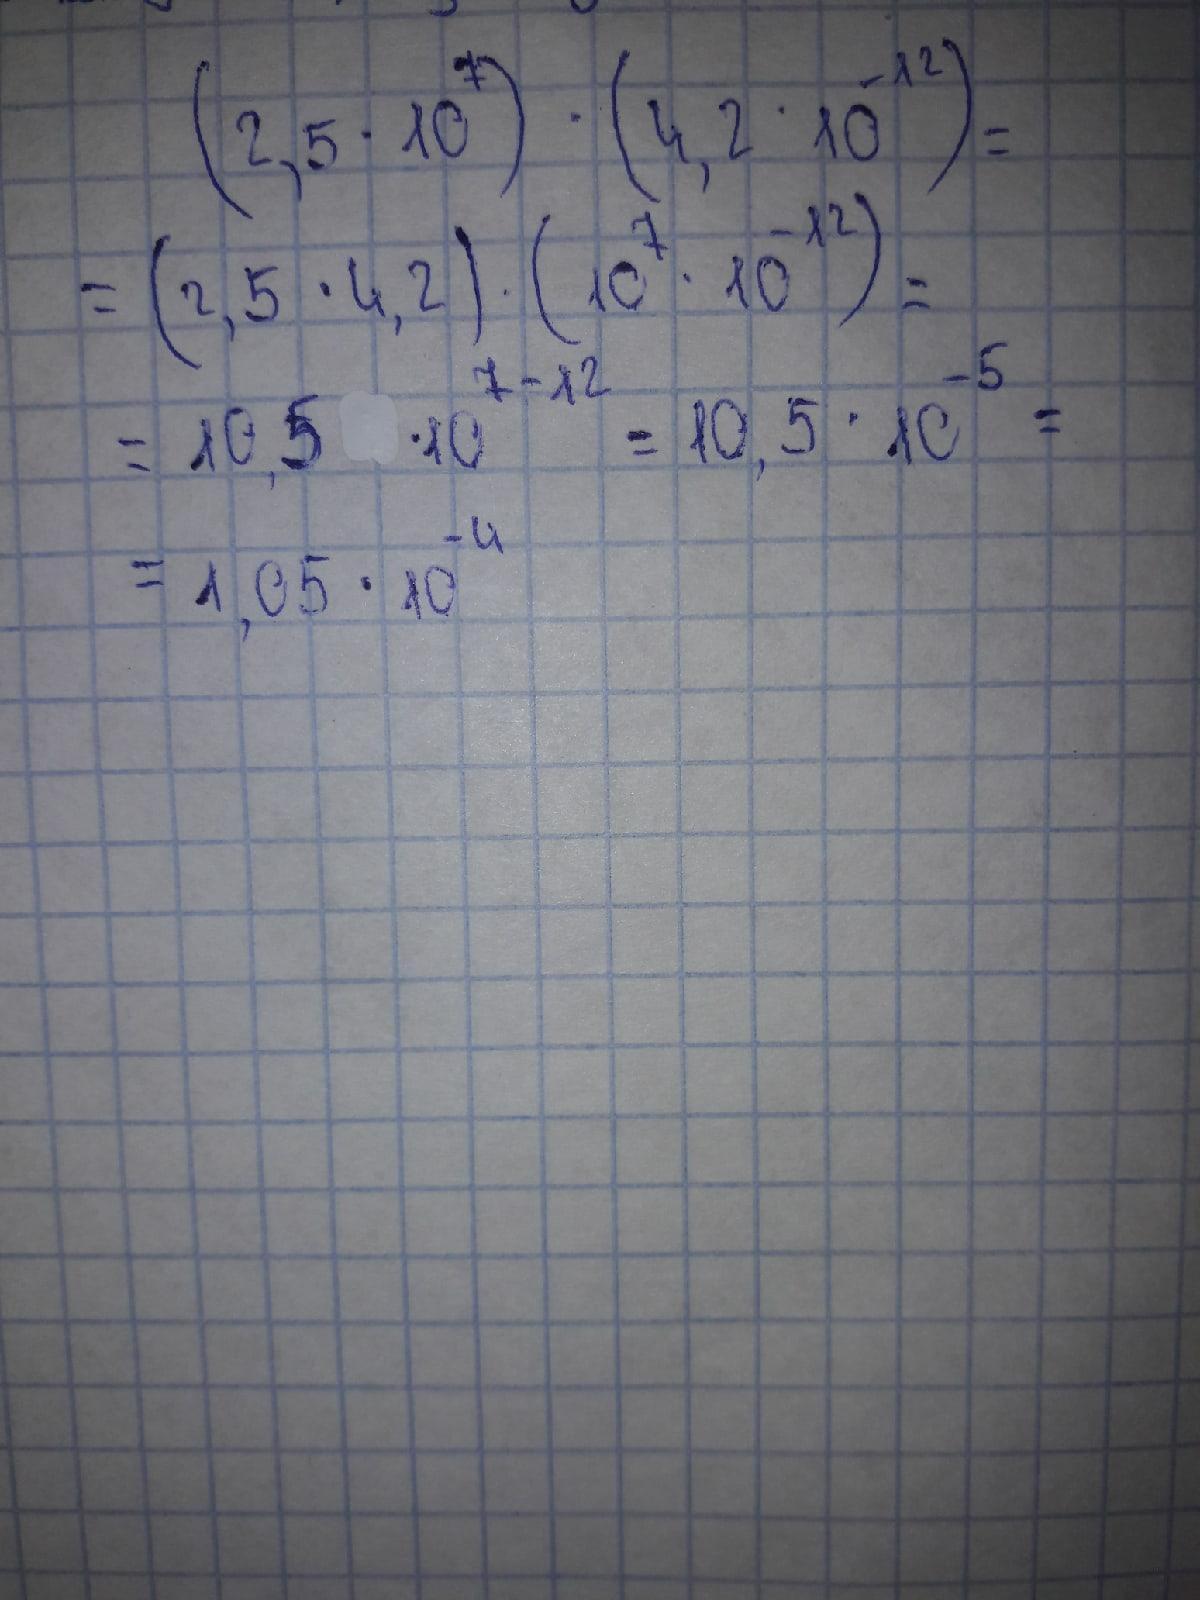 (2,5 · 10⁷) · (4,2 · 10⁻¹²) =
= (2,5 · 4,2) · (10⁷ · 10⁻¹²) =
= 10,5 · 10⁷⁻¹² = 10,5 · 10⁻⁵ =
= 1,05 · 10⁻⁴